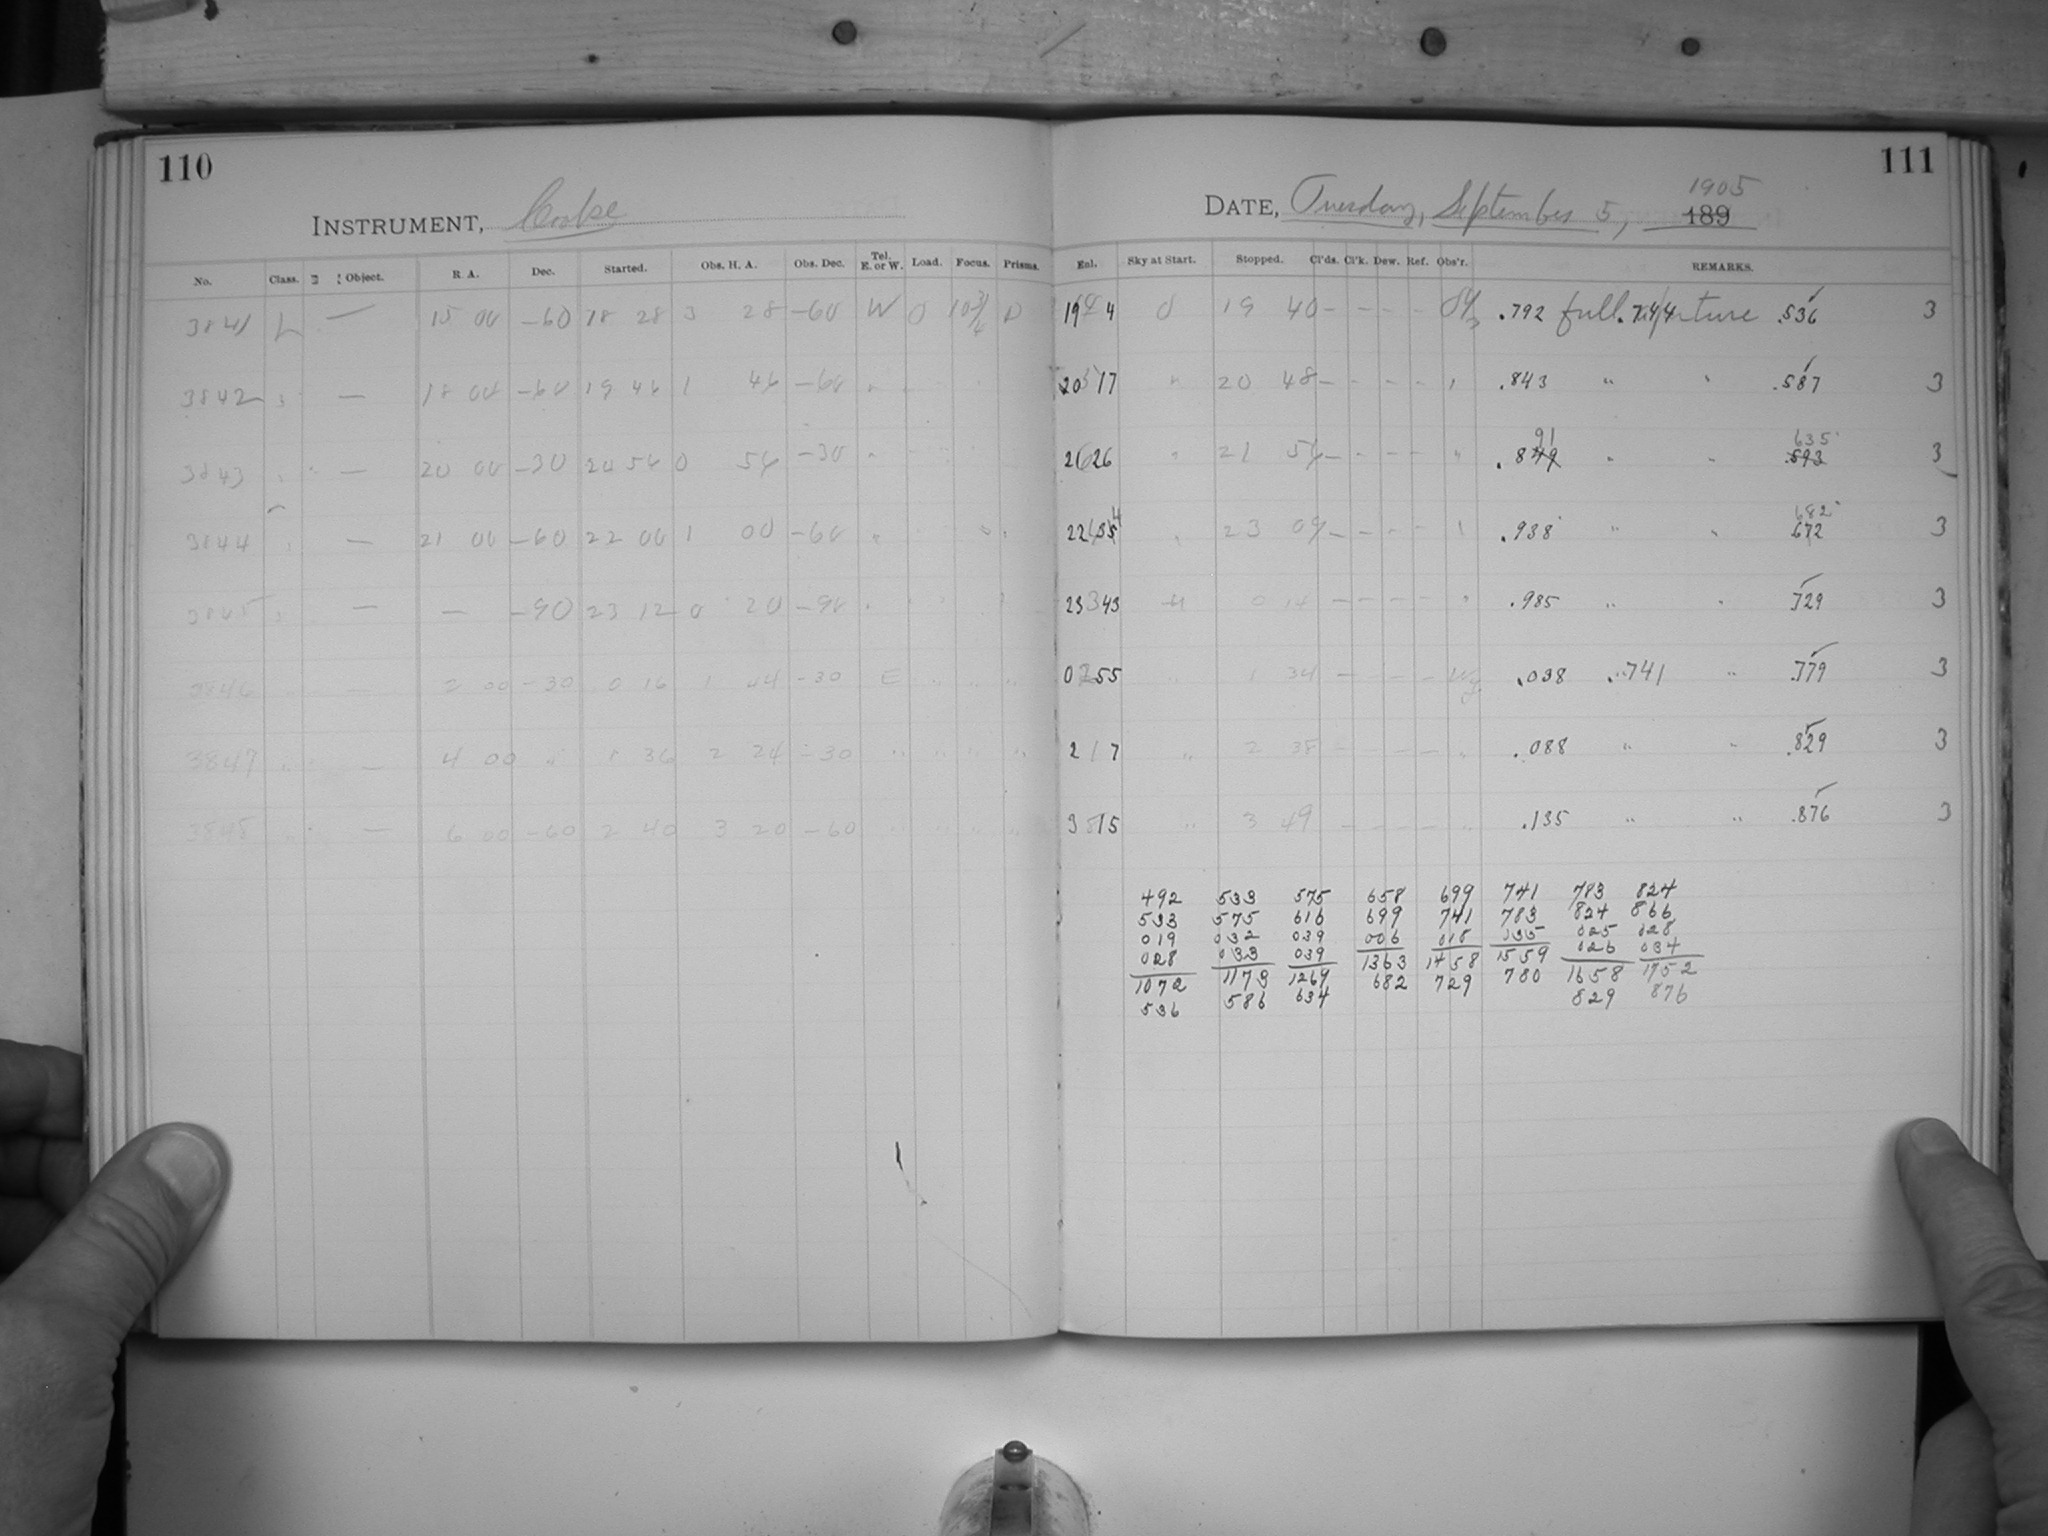 110
INSTRUMENT, Cooke
No. Class. Object. R. A. Dec. Started. Obs. H. A. Obs. Dec. Tel. E. or W. Load. Focus. Prisms.
3841 L — 15 00 -60 18 28 3 28 -60 W 0 10 3/4 0
3842 " — 18 00 -60 19 46 1 46 -60 "
3843 " " — 20 00 -30 20 54 0 54 -30 "
3844 " — 21 00 -60 22 00 1 00 -60 "
3845 " — — -90 23 12 0 20 -90 "
3846 " — 2 00 -30 0 16 1 44 -30 E " " "
3847 " — 4 00 " 1 36 2 24 -30 " " " "
3848 " — 6 00 -60 2 40 3 20 -60 " " " "
111
DATE, Tuesday, September 5, 1905
189
Enl. Sky at Start. Stopped. Cl'ds. Cl'k. Dew. Ref. Obs'r. REMARKS.
19 4 0 19 40 - - - - .792 full aperture .744 .536 3
20 17 " 20 48 - - - - " .843 " " .587 3
91 635
21 26 " 21 54 - - - - " .849 " " .593 3
682
22 35 4 " 23 09 - - - - " .938 " " .672 3
23 43 0 14 - - - - " .985 " " .729 3
0 55 " 1 34 - - - - .038 " .741 " .779 3
2 7 " 2 38 - - - - " .088 " " .829 3
3 15 " 3 49 - - - - " .135 " " .876 3
492 533 575 658 699 741 783 824
533 575 616 699 741 783 824 866
019 032 039 006 018 035 025 028
028 033 039 1363 1458 1559 026 034
1072 1173 1269 682 729 780 1658 1752
536 586 634 829 876